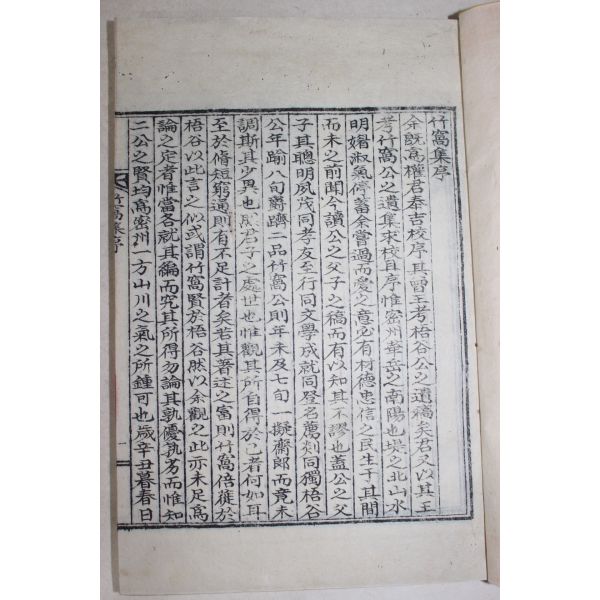 竹窩集序
余旣爲權君奉吉校序其曾王考梧谷公之遺稿矣君又以其王
考竹窩公之遺集來校且序惟密州華岳之南陽也堤之北山水
明媚淑氣停蓄余嘗過而愛之意必有材德忠信之民生于其間
而未之前聞今讀公之父子之稿而有以知其不謬也盖公之父
子其聰明夙茂同孝友至行同文學成就同登名薦剡同獨梧谷
公年踰八旬爵躋二品竹窩公則年未及七旬一擬齋郎而竟未
調斯其少異也然君子之處世也惟觀其所自得於己者何如耳
至於脩短窮通則有不足計者矣若其著述之富則竹窩倍蓰於
梧谷以此言之似或謂竹窩賢於梧谷然以余觀之此亦未足爲
論之定者惟當各就其編而究其所得勿論其孰優孰劣而惟知
二公之賢均爲密州一方山川之氣之所鍾可也歲辛丑暮春日
竹窩集序
一